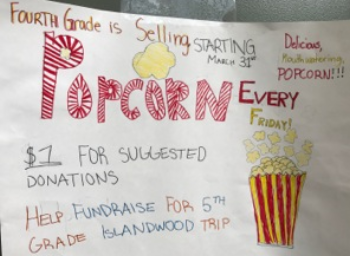 FOURTH GRADE is Selling
STARTING
MARCH 31st
Delicious,
Mouthwatering,
POPCORN!!!
POPCORN EVERY
FRIDAY!
$1 FOR SUGGESTED
DONATIONS
HELP FUNDRAISE FOR 5TH
GRADE ISLANDWOOD TRIP